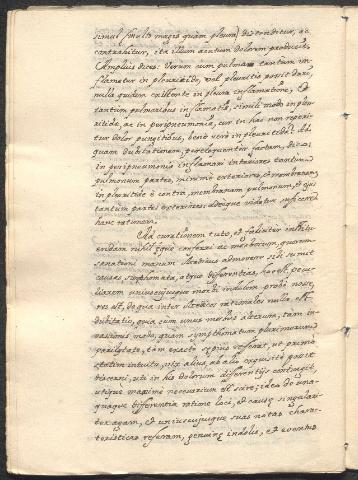 simul simulo magis quàm pleura) distenditur, ac
contrahitur, ita illum acutum dolorem producit.
Ampliùs dices: Verum cum pulmo tantum in-
flametur in pleuritide, vel pleuritis possit dari,
nulla quidem existente in pleura inflamatione, et
tantum pulmonibus inflamatis, simili modo in pleu-
ritide, ac in peripneumonia, cur in hac non reperi-
tur dolor pungitivus, benè verò in pleuritide? Ali-
quam dubitationem, perelegantèr factam, dico:
in peripneumonia inflamari interiores tantum
pulmonum partes, minimè exteriores, et membranam,
in pleuritide è contra, membranam pulmonum, et ejus
tantum partes exteriores: adeoque videtur sufficere
hanc rationem.
Ad curationem tutò, et feliciter insti-
endam nihil æque conferri ac morborum, quorum
sanationi manum Medicus admovere
causas, symptomata, atque differentias, hoc est, pecu-
liarem uniuscujusque morbi indolem probè nosce-
re: ut, de qua inter Medicos rationales nulla est
dubitatio, quia cum unus morbus alterum, tam in-
vasionis modo, quam symptomatum plurimorum
pariformitate, tam exactè sæpius referat, ut primo
statim intuitu, vix alius, ab alio exquisitè possit
discerni, uti in his dolorum differentijs contingit,
utique maximè necessarium est scire; idcò de una-
quaque differentia ratione loci, et causæ singulari-
ter agam, et uniuscujusque suas notas charac-
teristicas referam, genuinæ indolis, et eventus